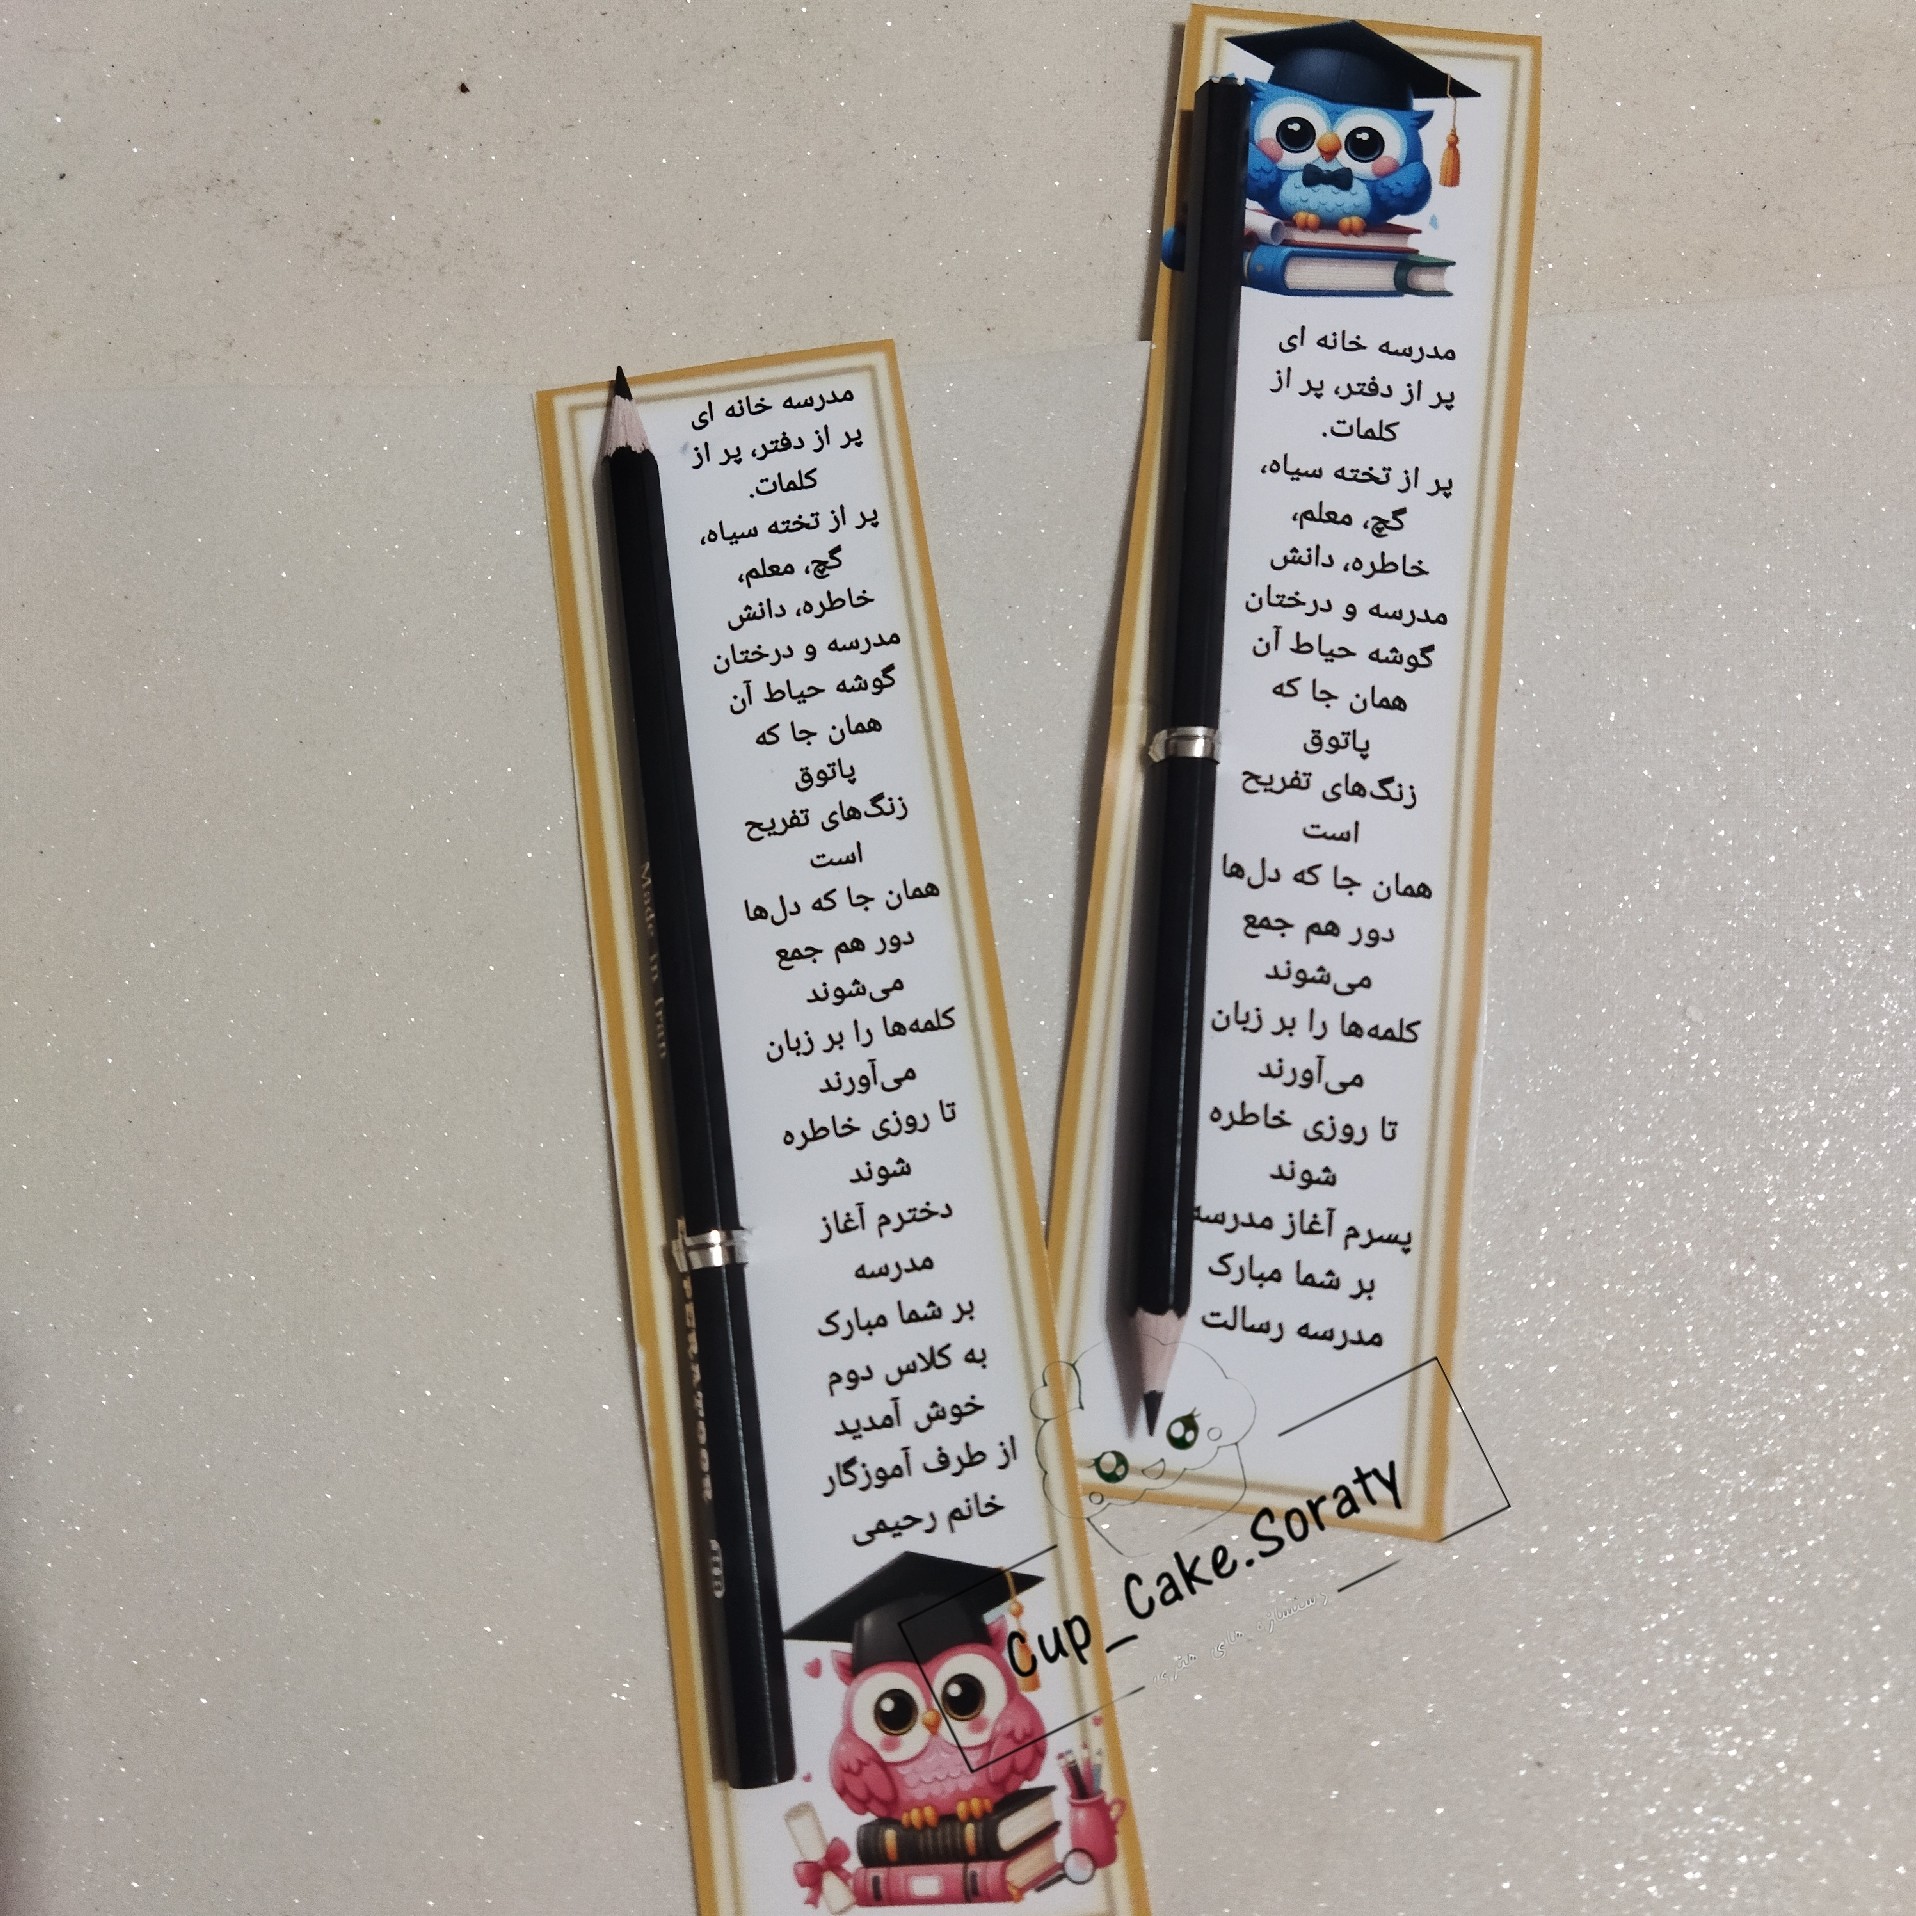 مدرسه خانه ای
پر از دفتر، پر از
کلمات.
پر از تخته سیاه،
گچ، معلم،
خاطره، دانش
مدرسه و درختان
گوشه حیاط آن
همان جا که
پاتوق
زنگ‌های تفریح
است
همان جا که دل‌ها
دور هم جمع
می‌شوند
کلمه‌ها را بر زبان
می‌آورند
تا روزی خاطره
شوند
پسرم آغاز مدرسه
بر شما مبارک
مدرسه رسالت
مدرسه خانه ای
پر از دفتر، پر از
کلمات.
پر از تخته سیاه،
گچ، معلم،
خاطره، دانش
مدرسه و درختان
گوشه حیاط آن
همان جا که
پاتوق
زنگ‌های تفریح
است
همان جا که دل‌ها
دور هم جمع
می‌شوند
کلمه‌ها را بر زبان
می‌آورند
تا روزی خاطره
شوند
دخترم آغاز
مدرسه
بر شما مبارک
به کلاس دوم
خوش آمدید
از طرف آموزگار
خانم رحیمی
Made in Iran
Cup_Cake.Soraty